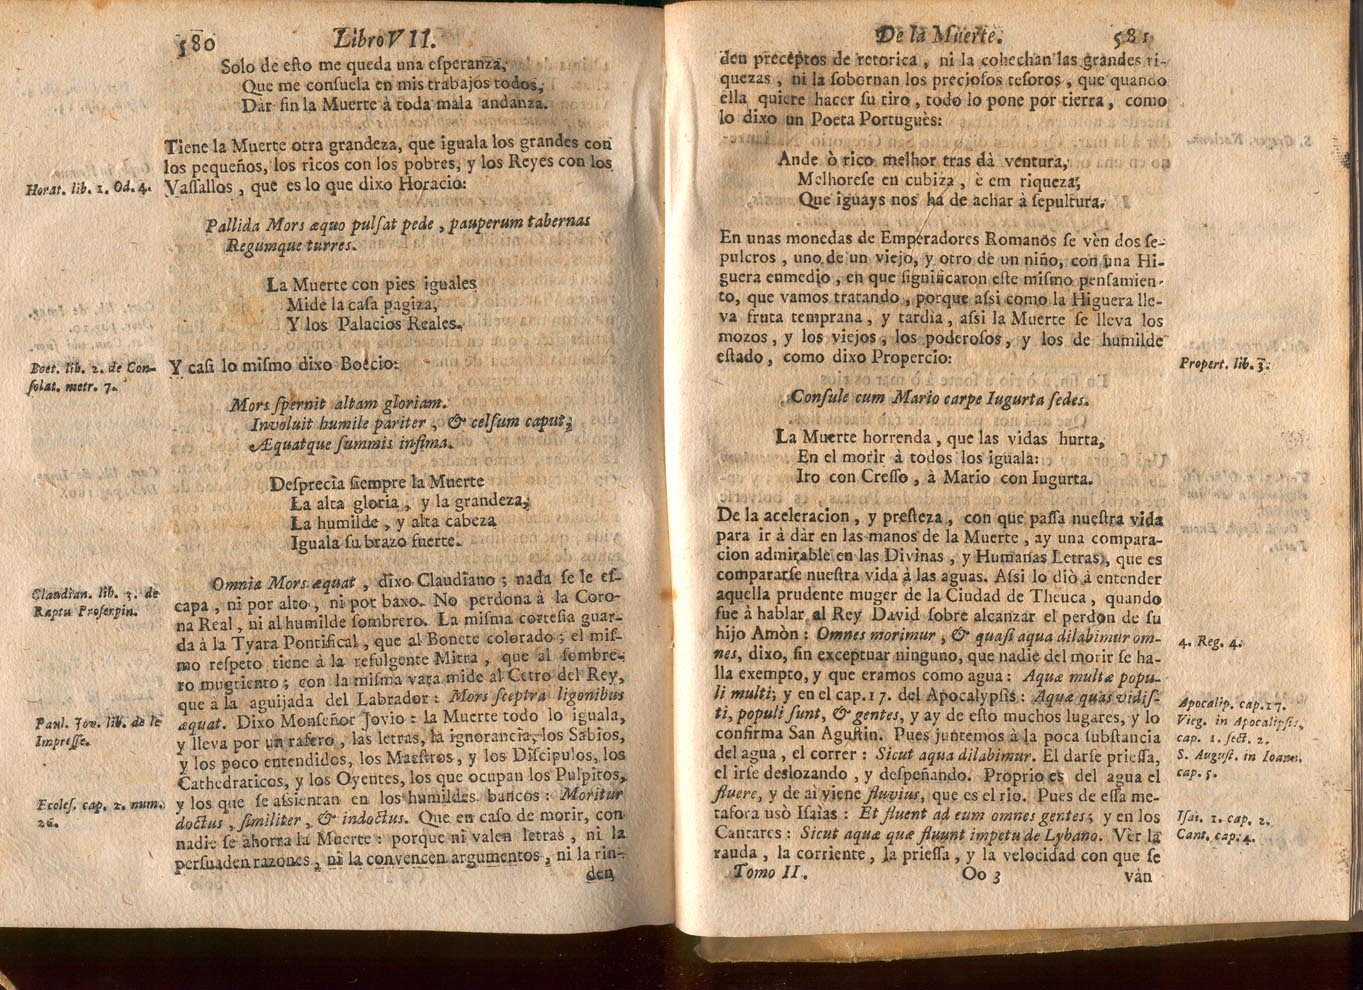 580
Libro VII.
Solo de eſto me queda una eſperanza,
Que me conſuela en mis trabajos todos,
Dar fin la Muerte à toda mala andanza.
Tiene la Muerte otra grandeza, que iguala los grandes con
los pequeños, los ricos con los pobres, y los Reyes con los
Horat. lib. 1. Od. 4.
Vaſſallos, que es lo que dixo Horacio:
Pallida Mors æquo pulſat pede, pauperum tabernas
Regumque turres.
La Muerte con pies iguales
Mide la caſa pagiza,
Y los Palacios Reales.
Boet. lib. 2. de Con-
ſolat. metr. 7.
Y caſi lo miſmo dixo Boècio:
Mors ſpernit altam gloriam.
Involuit humile pariter, & celſum caput,
Æquatque ſummis infima.
Deſprecia ſiempre la Muerte
La alta gloria, y la grandeza,
La humilde, y alta cabeza
Iguala ſu brazo fuerte.
Claudian. lib. 3. de
Raptu Proſerpin.
Omnia Mors æquat, dixo Claudiano; nada ſe le eſ-
capa, ni por alto, ni por baxo. No perdona à la Coro-
na Real, ni al humilde ſombrero. La miſma corteſia guar-
da à la Tyara Pontifical, que al Bonete colorado; el miſ-
mo reſpeto tiene à la refulgente Mitra, que al ſombre-
ro mugriento; con la miſma vara mide al Cetro del Rey,
que à la aguijada del Labrador: Mors ſceptra ligonibus
Paul. Jov. lib. de le
Impreſſe.
æquat. Dixo Monſeñor Jovio: la Muerte todo lo iguala,
y lleva por un raſero, las letras, la ignorancia, los Sabios,
y los poco entendidos, los Maeſtros, y los Diſcipulos, los
Cathedraticos, y los Oyentes, los que ocupan los Pulpitos,
Eccleſ. cap. 2. num.
26.
y los que ſe aſsientan en los humildes bancos: Moritur
doctus, ſimiliter, & indoctus. Que en caſo de morir, con
nadie ſe ahorra la Muerte: porque ni valen letras, ni la
perſuaden razones, ni la convencen argumentos, ni la rin-
den
De la Muerte.
581
den preceptos de retorica, ni la cohechan las grandes ri-
quezas, ni la ſobornan los precioſos teſoros, que quando
ella quiere hacer ſu tiro, todo lo pone por tierra, como
lo dixo un Poeta Portuguès:
Ande ò rico melhor tras dà ventura,
Melhoreſe en cubiza, è em riqueza,
Que iguays nos ha de achar à ſepultura.
En unas monedas de Emperadores Romanos ſe vèn dos ſe-
pulcros, uno de un viejo, y otro de un niño, con una Hi-
guera enmedio, en que ſignificaron eſte miſmo penſamien-
to, que vamos tratando, porque aſsi como la Higuera lle-
va fruta temprana, y tardia, aſsi la Muerte ſe lleva los
mozos, y los viejos, los poderoſos, y los de humilde
eſtado, como dixo Propercio:
Propert. lib. 3.
Conſule cum Mario carpe Iugurta ſedes.
La Muerte horrenda, que las vidas hurta,
En el morir à todos los iguala:
Iro con Creſſo, à Mario con Iugurta.
De la aceleracion, y preſteza, con que paſſa nueſtra vida
para ir à dàr en las manos de la Muerte, ay una compara-
cion admirable en las Divinas, y Humanas Letras, que es
compararſe nueſtra vida à las aguas. Aſsi lo diò à entender
aquella prudente muger de la Ciudad de Theuca, quando
fue à hablar al Rey David ſobre alcanzar el perdon de ſu
hijo Amòn: Omnes morimur, & quaſi aqua dilabimur om-
4. Reg. 4.
nes, dixo, ſin exceptuar ninguno, que nadie del morir ſe ha-
lla exempto, y que eramos como agua: Aquæ multæ popu-
li multi; y en el cap. 17. del Apocalypſis: Aquæ quas vidiſ-
ti, populi ſunt, & gentes, y ay de eſto muchos lugares, y lo
confirma San Aguſtin. Pues juntemos à la poca ſubſtancia
del agua, el correr: Sicut aqua dilabimur. El darſe prieſſa,
el irſe deslozando, y deſpeñando. Proprio es del agua el
Apocalip. cap. 17.
Vieg. in Apocalipſis,
cap. 1. ſect. 2.
S. Auguſt. in Ioann.
cap. 5.
fluere, y de ai viene fluvius, que es el rio. Pues de eſſa me-
tafora usò Iſaìas: Et fluent ad eum omnes gentes; y en los
Cantares: Sicut aquæ quæ fluunt impetu de Lybano. Vèr la
Iſai. 1. cap. 2.
Cant. cap. 4.
rauda, la corriente, la prieſſa, y la velocidad con que ſe
Tomo II.
Oo 3
vàn